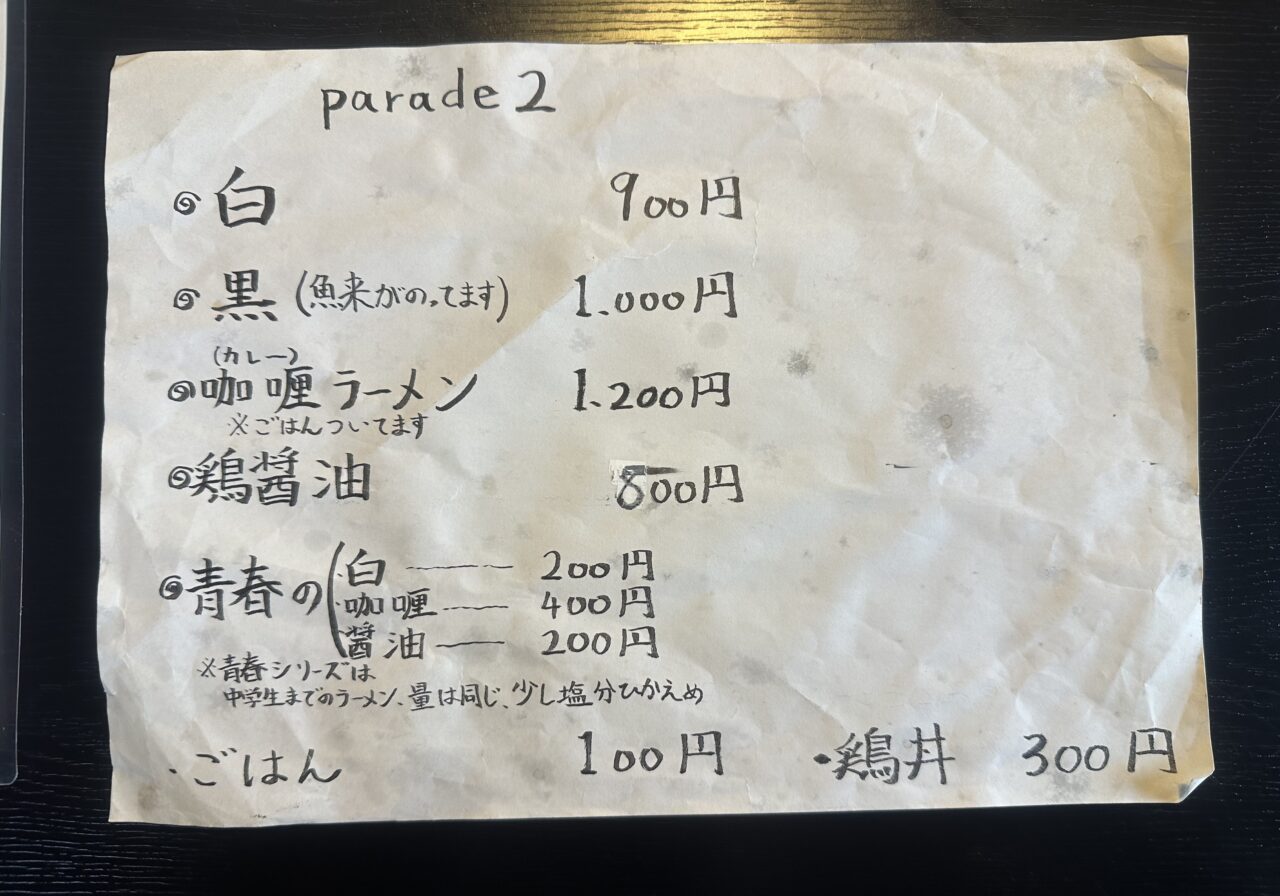 parade2
白 900円
黒(魚来がのってます) 1.000円
(カレー)
咖喱ラーメン 1.200円
※ごはんついてます
鶏醤油 800円
青春の(白 200円
咖喱 400円
醤油 200円
※青春シリーズは
中学生までのラーメン、量は同じ、少し塩分ひかえめ
・ごはん 100円 ・鶏丼 300円